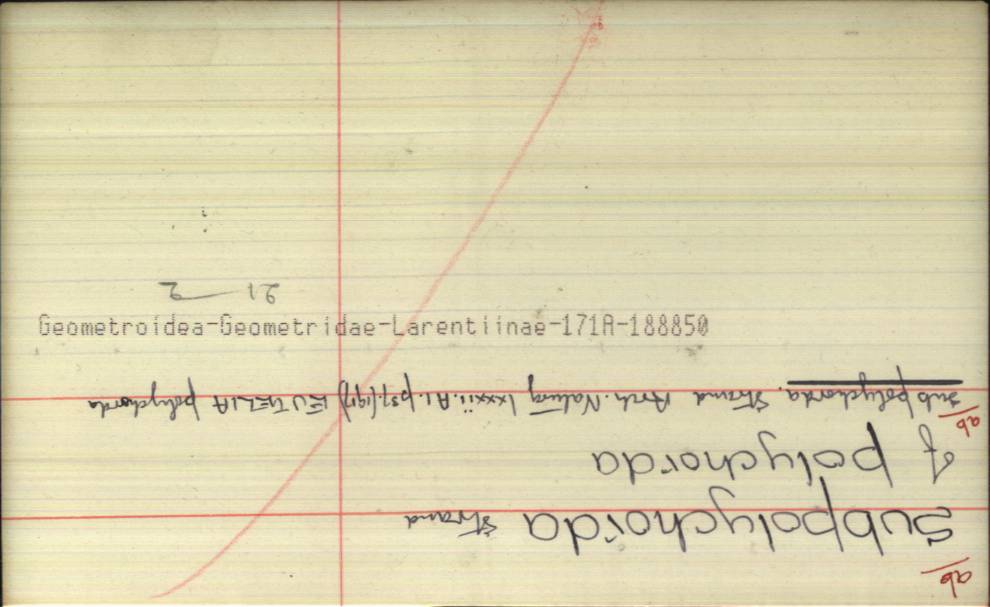 ab
subpolychorda Strand
of polychorda
ab
subpolychorda. Strand Arch. Naturg lxxxii. A1. p87. (1917) EUTELIA polychorda
Geometroidea-Geometridae-Larentiinae-171A-188850
21 — 2